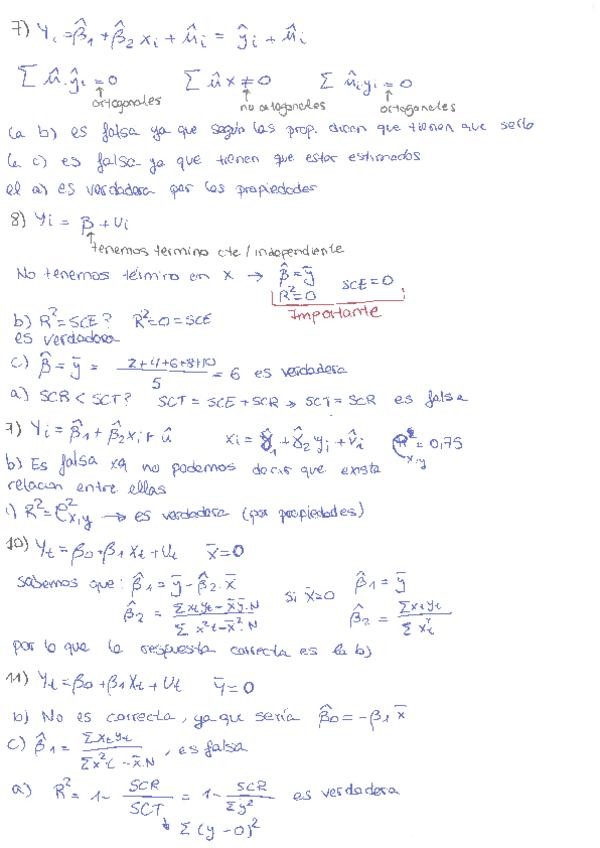 7) Yᵢ = β̂₁ + β̂₂ xᵢ + μ̂ᵢ = ŷᵢ + μ̂ᵢ
Σ μ̂.ŷᵢ = 0   Σ μ̂ x ≠ 0   Σ μ̂ᵢ yᵢ = 0
ortogonales   no ortogonales   ortogonales
La b) es falsa ya que según las prop. dicen que tienen que serlo
La c) es falsa ya que tienen que estar estimados
el a) es verdadera por las propiedades
8) Yᵢ = β + Uᵢ
tenemos termino cte / independiente
No tenemos término en x → β̂ = ȳ
R² = 0   SCE = 0
Importante
b) R² = SCE?   R² = 0 = SCE
es verdadera
c) β̂ = ȳ = (2+4+6+8+10)/5 = 6 es verdadera
a) SCR < SCT?   SCT = SCE + SCR → SCT = SCR es falsa
7) Yᵢ = β̂₁ + β̂₂ xᵢ + û   xᵢ = γ̂₁ + γ̂₂ yᵢ + v̂ᵢ   ρ²x,y = 0,75
b) Es falsa xq no podemos decir que exista
relacion entre ellas
c) R² = ρ²x,y → es verdadera (por propiedades)
10) Yₜ = β₀ + β₁Xₜ + Uₜ   x̄ = 0
Sabemos que: β̂₁ = ȳ - β̂₂.x̄   si x̄=0   β̂₁ = ȳ
β̂₂ = (Σxₜyₜ - x̄ȳ.N)/(Σx²t - x̄².N)   β̂₂ = Σxₜyₜ/Σxₜ²
por lo que la respuesta correcta es la b)
11) Yₜ = β₀ + β₁Xₜ + Uₜ   ȳ = 0
b) No es correcta, ya que sería β̂₀ = -β₁ x̄
c) β̂₁ = Σxₜyₜ/(Σx²t - x̄.N), es falsa
a) R² = 1 - SCR/SCT = 1 - SCR/Σy² es verdadera
Σ(y - 0)²